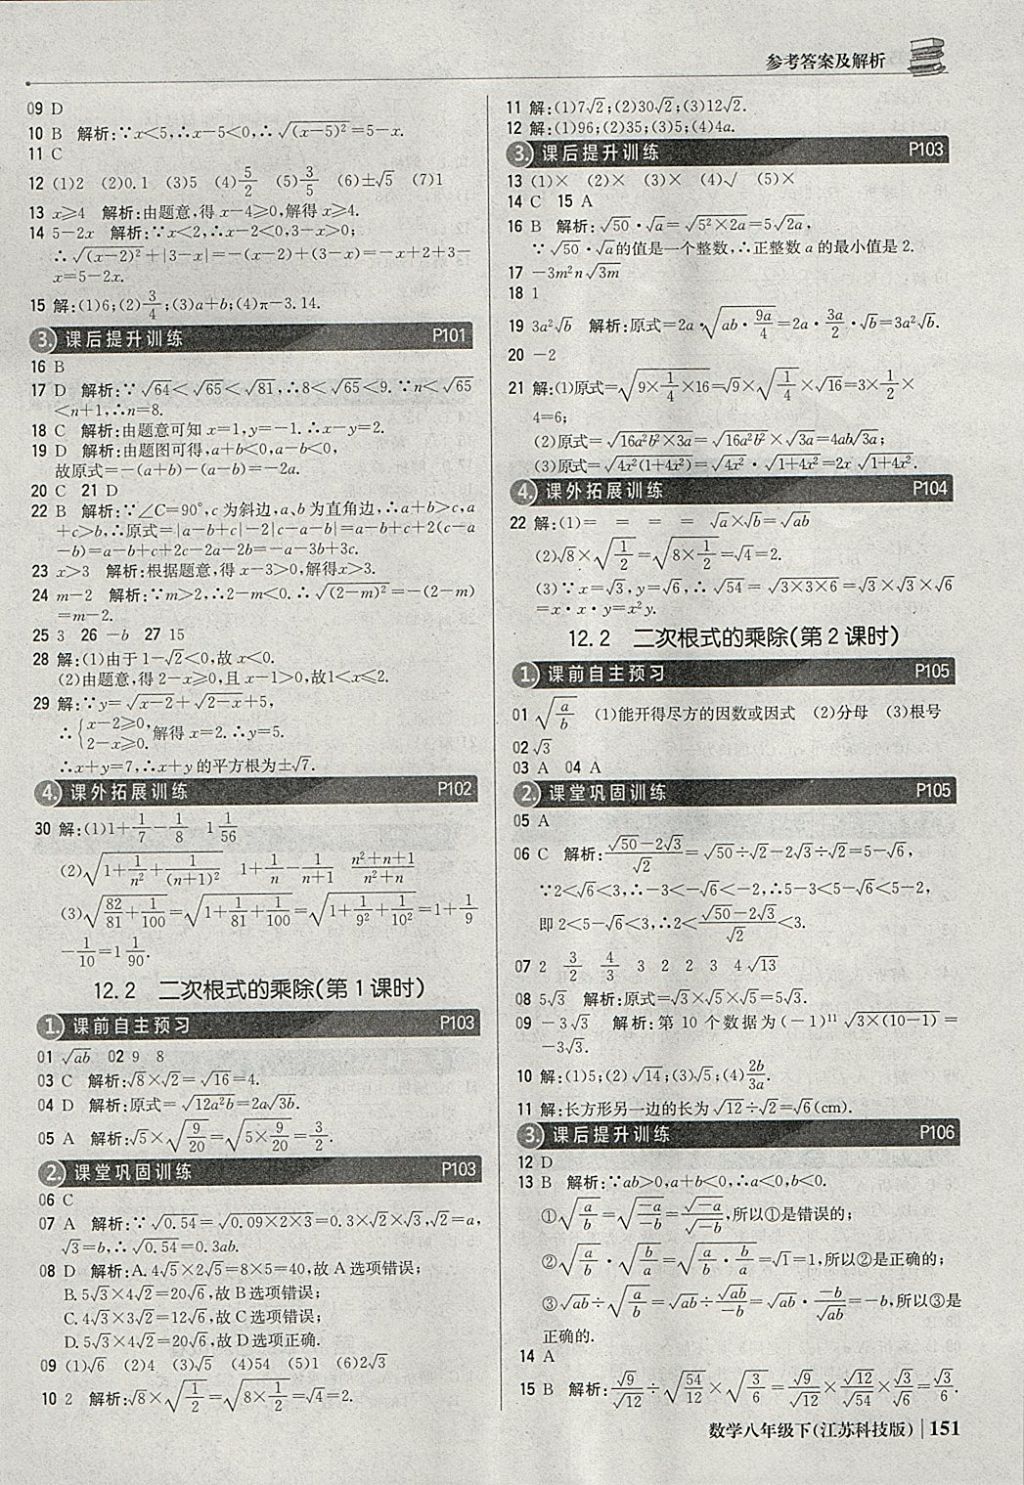 参考答案及解析
09 D
10 B 解析:∵x<5,∴x-5<0,∴√(x-5)²=5-x.
11 C
12 (1)2 (2)0.1 (3)5 (4)5/2 (5)3/5 (6)±√5 (7)1
13 x≥4 解析:由题意,得 x-4≥0,解得 x≥4.
14 5-2x 解析:∵x<2,∴x-2<0,3-x>0;
∴√(x-2)²+|3-x|=-(x-2)+(3-x)=-x+2+3-
x=5-2x.
15 解:(1)6;(2)3/4;(3)a+b;(4)π-3.14.
3. 课后提升训练 P101
16 B
17 D 解析:∵√64<√65<√81,∴8<√65<9.∵n<√65
<n+1,∴n=8.
18 C 解析:由题意可知 x=1,y=-1.∴x-y=2.
19 D 解析:由题图可得,a+b<0,a-b<0,
故原式=-(a+b)-(a-b)=-2a.
20 C 21 D
22 B 解析:∵∠C=90°,c为斜边,a、b为直角边,∴a+b>c,a
+c>b,∴原式=|a-b+c|-2|c-a-b|=a-b+c+2(c-a
-b)=a-b+c+2c-2a-2b=-a-3b+3c.
23 x>3 解析:根据题意,得 x-3>0,解得x>3.
24 m-2 解析:∵m>2,∴2-m<0.∴√(2-m)²=-(2-m)
=m-2.
25 3 26 -b 27 15
28 解:(1)由于1-√2<0,故 x<0.
(2)由题意,得 2-x≥0,且 x-1>0,故1<x≤2.
29 解:∵y=√(x-2)+√(2-x)+5,
∴{x-2≥0, 2-x≥0. 解得 x=2.∴y=5.
∴x+y=7,∴x+y 的平方根为±√7.
4. 课外拓展训练 P102
30 解:(1)1+1/7-1/8 1 1/56
(2)√(1+1/n²+1/(n+1)²) 1+1/n-1/(n+1) (n²+n+1)/(n²+n)
(3)√(82/81+1/100)=√(1+1/81+1/100)=√(1+1/9²+1/10²)=1+1/9
-1/10=1 1/90.
12.2 二次根式的乘除(第1课时)
1. 课前自主预习 P103
01 √ab 02 9 8
03 C 解析:√8×√2=√16=4.
04 D 解析:原式=√(12a²b)=2a√3b.
05 A 解析:√5×√(9/20)=√(5×9/20)=3/2.
2. 课堂巩固训练 P103
06 C
07 A 解析:∵√0.54=√(0.09×2×3)=0.3×√2×√3,√2=a,
√3=b,∴√0.54=0.3ab.
08 D 解析:A.4√5×2√5=8×5=40,故 A选项错误;
B.5√3×4√2=20√6,故 B选项错误;
C.4√3×3√2=12√6,故 C选项错误;
D.5√3×4√2=20√6,故 D选项正确.
09 (1)√6 (2)4 (3)√5 (4)54 (5)1 (6)2√3
10 2 解析:√8×√(1/2)=√(8×1/2)=√4=2.
11 解:(1)7√2;(2)30√2;(3)12√2.
12 解:(1)96;(2)35;(3)5;(4)4a.
3. 课后提升训练 P103
13 (1)× (2)× (3)× (4)√ (5)×
14 C 15 A
16 B 解析:√50·√a=√(5²×2a)=5√2a,
∵√50·√a的值是一个整数,∴正整数 a 的最小值是 2.
17 -3m²n√3m
18 1
19 3a²√b 解析:原式=2a·√(ab·9a/4)=2a·3a/2·√b=3a²√b.
20 -2
21 解:(1)原式=√(9×1/4×16)=√9×√(1/4)×√16=3×1/2×
4=6;
(2)原式=√(16a²b²×3a)=√(16a²b²)×√3a=4ab√3a;
(3)原式=√(4x²(1+4x²))=√(4x²)·√(1+4x²)=2x√(1+4x²).
4. 课外拓展训练 P104
22 解:(1)= = = = √a×√b=√ab
(2)√8×√(1/2)=√(8×1/2)=√4=2.
(3)∵x=√3,y=√6,∴√54=√(3×3×6)=√3×√3×√6
=x·x·y=x²y.
12.2 二次根式的乘除(第2课时)
1. 课前自主预习 P105
01 √(a/b) (1)能开得尽方的因数或因式 (2)分母 (3)根号
02 √3
03 A 04 A
2. 课堂巩固训练 P105
05 A
06 C 解析:(√50-2√3)/√2=√50÷√2-2√3÷√2=5-√6,
∵2<√6<3,∴-3<-√6<-2,∴5-3<5-√6<5-2,
即 2<5-√6<3,∴2<(√50-2√3)/√2<3.
07 2 3/2 4/3 3 2 2 3 4 √13
08 5√3 解析:原式=√3×√5×√5=5√3.
09 -3√3 解析:第 10 个数据为(-1)¹¹√(3×(10-1))=
-3√3.
10 解:(1)5;(2)√14;(3)√5;(4)2b/3a.
11 解:长方形另一边的长为√12÷√2=√6(cm).
3. 课后提升训练 P106
12 D
13 B 解析:∵ab>0,a+b<0,∴a<0,b<0.
①√(a/b)=√(-a/-b)=√-a/√-b,所以①是错误的;
②√(a/b)·√(b/a)=√(a/b·b/a)=√1=1,所以②是正确的;
③√ab÷√(a/b)=√ab÷√ab/-b=√ab·-b/√ab=-b,所以③是
正确的.
14 A
15 B 解析:√9/√12÷√(54/12)×√(3/6)=√9/√12×√12/√54×√3/√6=√3/6.
数学八年级下(江苏科技版) 151